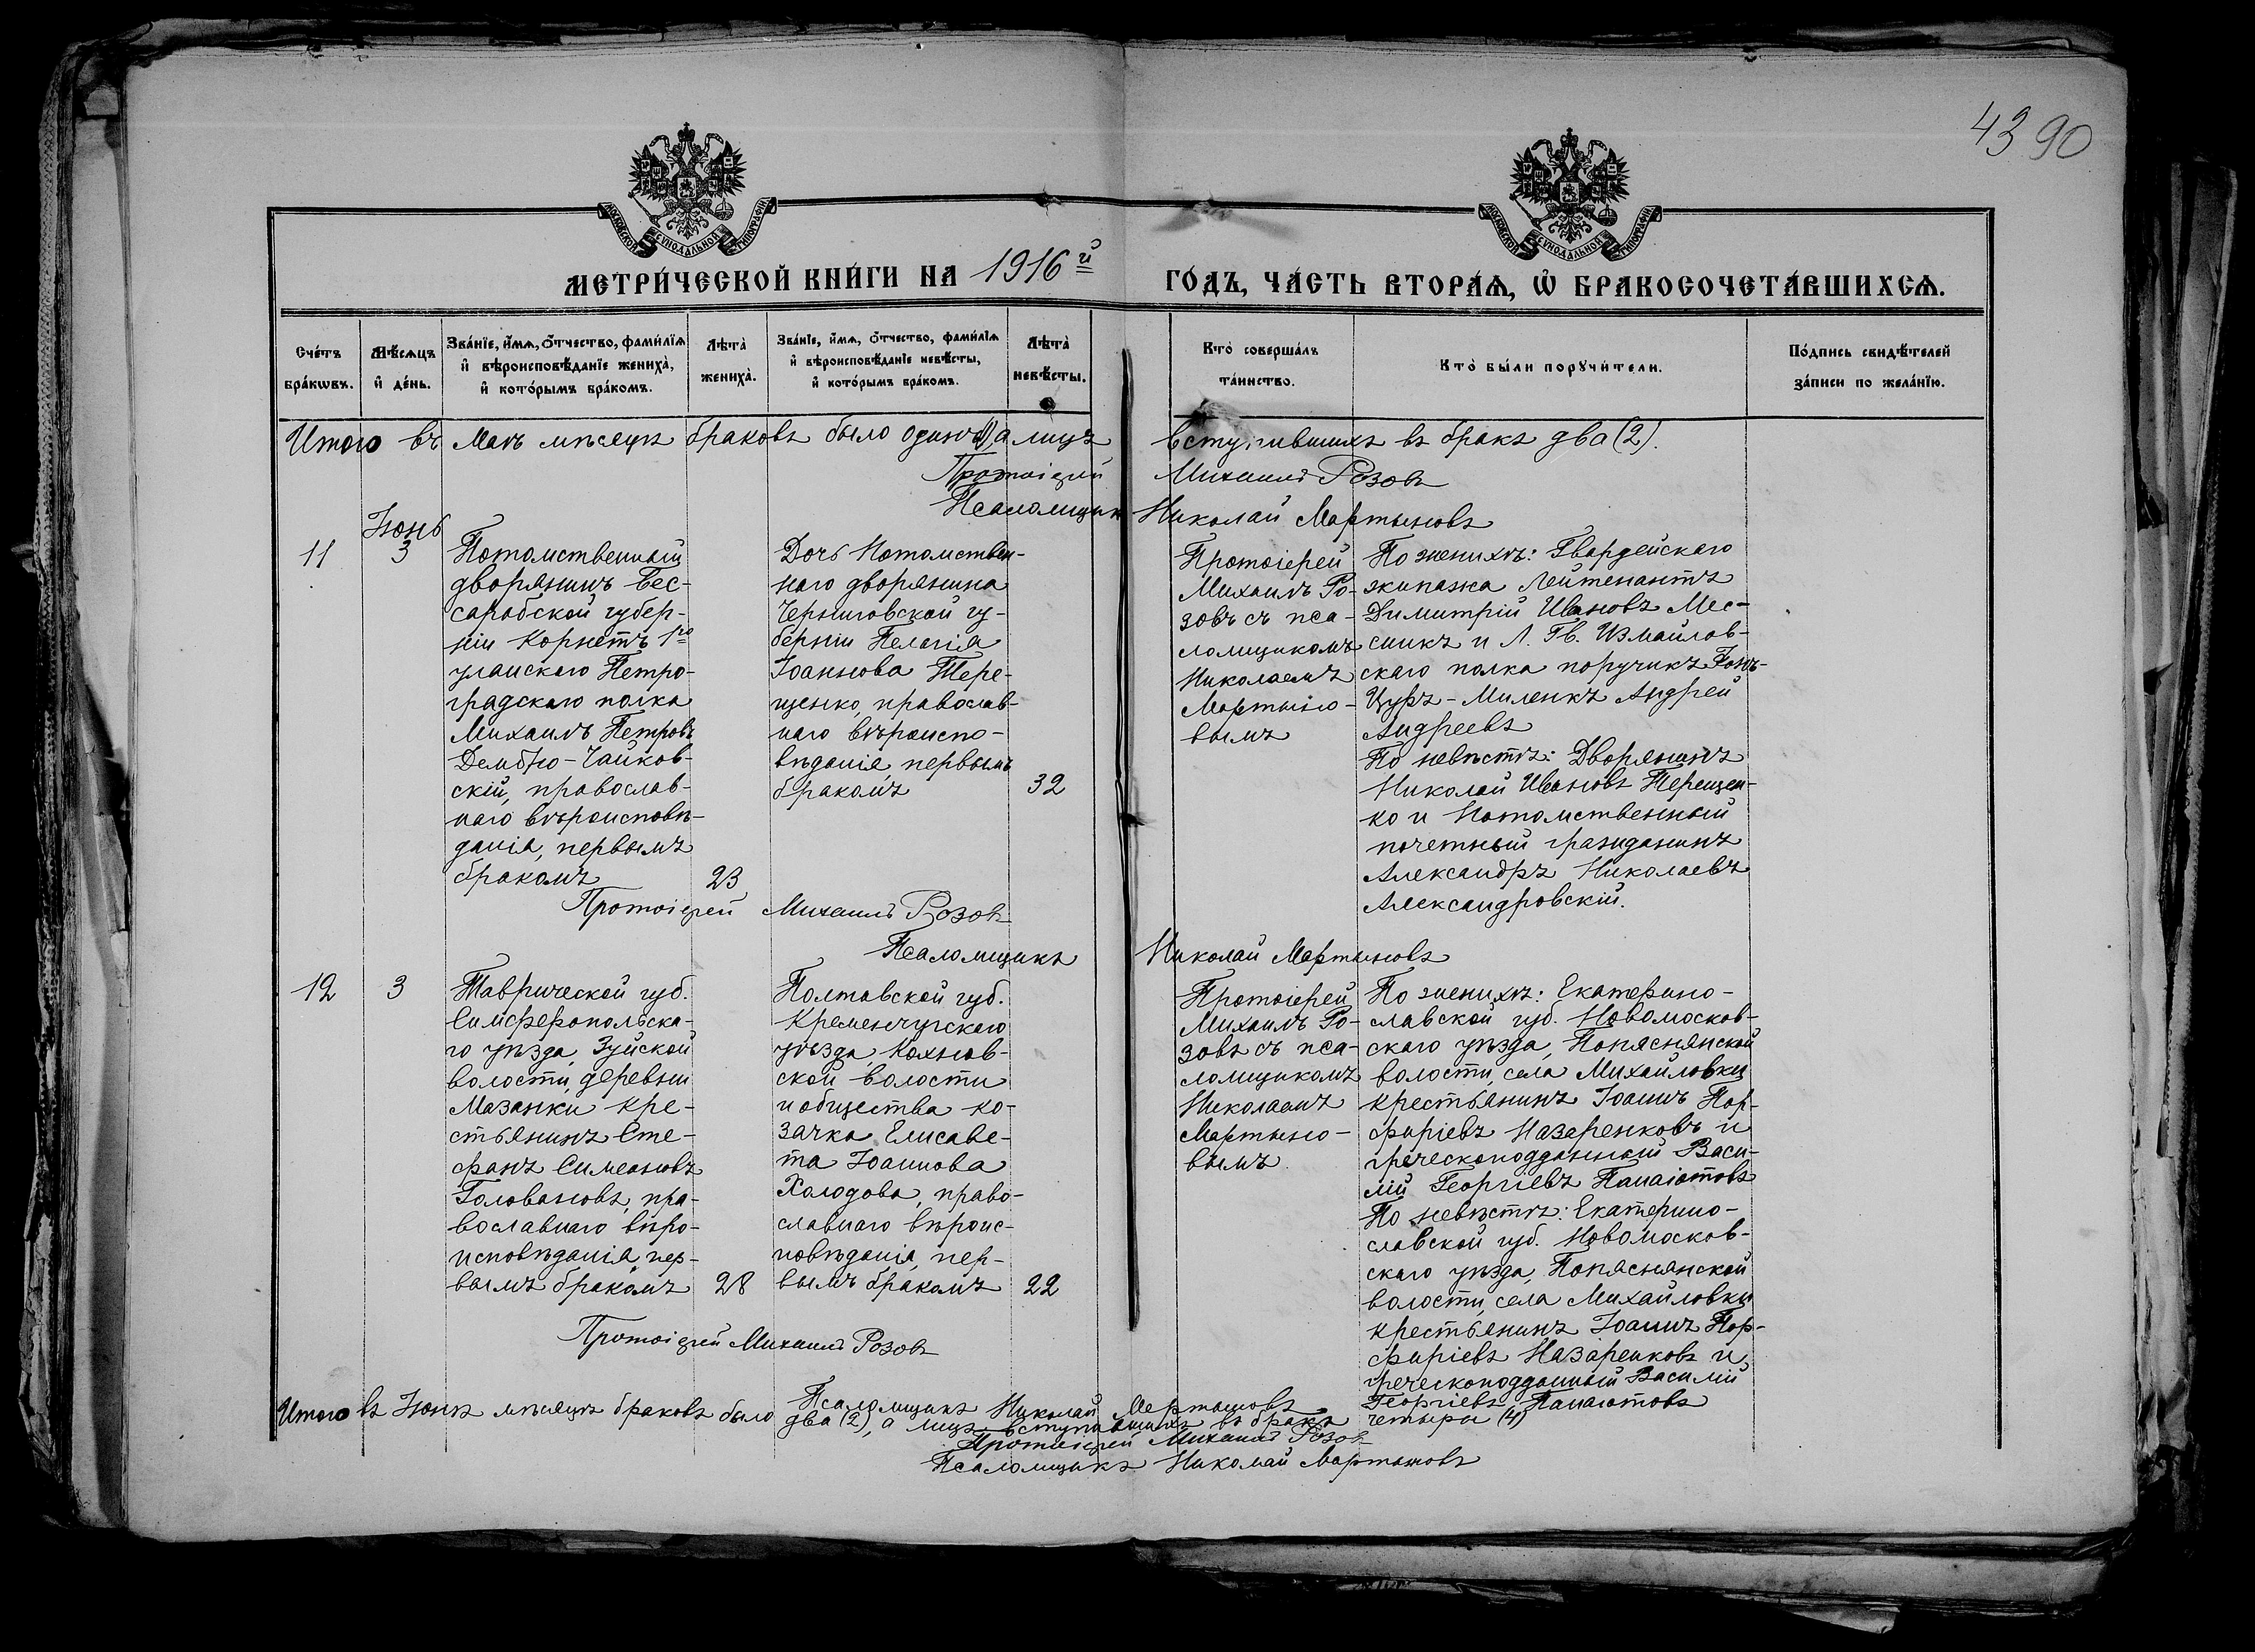 43 90
МОСКОВСКОЙ СѴНОДАЛЬНОЙ ТИПОГРАФІИ
МОСКОВСКОЙ СѴНОДАЛЬНОЙ ТИПОГРАФІИ
МЕТРИ́ЧЕСКОЙ КНИ́ГИ НА 1916й ГО́ДЪ, ЧА́СТЬ ВТОРА́Ѧ, Ѡ҆ БРАКОСОЧЕТА́ВШИХСѦ.
Сче́тъ
бра́кѡвъ.
Мѣ́сѧцъ
и҆ де́нь.
Зва́нїе, и҆́мѧ, ѻ҆́тчество, фами́лїѧ
и҆ вѣроисповѣ́данїе жениха̀,
и҆ кото́рымъ бра́комъ.
Лѣта̀
жениха̀.
Зва́нїе, и҆́мѧ, ѻ҆́тчество, фами́лїѧ
и҆ вѣроисповѣ́данїе невѣ́сты,
и҆ кото́рымъ бра́комъ.
Лѣта̀
невѣ́сты.
Кто̀ соверша́лъ
та́инство.
Кто̀ бы́ли порꙋчи́тели.
По́дпись свидѣ́телей
за́писи по жела́нїю.
Итого въ Маѣ мѣсяцѣ браковъ было одинъ (1), а лицъ вступившихъ въ бракъ два (2).
Протоіерей Михаилъ Розовъ
Псаломщикъ Николай Мартыновъ
Іюнь
11
3
Потомственный
дворянинъ Бес-
сарабской губер-
ніи Корнетъ 1го
уланскаго Петро-
градскаго полка
Михаилъ Петровъ
Дембно-Чайков-
скій, православ-
наго вѣроисповѣ-
данія, первымъ
бракомъ
23
Дочь Потомствен-
наго дворянина
Черниговской гу-
берніи Пелагія
Іоаннова Тере-
щенко, православ-
наго вѣроиспо-
вѣданія, первымъ
бракомъ
32
Протоіерей
Михаилъ Ро-
зовъ съ пса-
ломщикомъ
Николаемъ
Мартыно-
вымъ
По женихѣ: Гвардейскаго
экипажа Лейтенантъ
Димитрій Ивановъ Мес-
снихъ и Л. Гв. Измайлов-
скаго полка поручикъ Фонъ-
Цуръ-Миленъ Андрей
Андреевъ
По невѣстѣ: Дворянинъ
Николай Ивановъ Терещен-
ко и Потомственный
почетный гражданинъ
Александръ Николаевъ
Александровскій.
Протоіерей Михаилъ Розовъ
Псаломщикъ Николай Мартыновъ
12
3
Таврической губ.
Симферопольска-
го уѣзда, Зуйской
волости, деревни
Мазанки кре-
стьянинъ Сте-
фанъ Симеоновъ
Головановъ, пра-
вославнаго вѣро-
исповѣданія, пер-
вымъ бракомъ
28
Полтавской губ.
Кременчугскаго
уѣзда Кохнов-
ской волости
и общества ка-
зачка Елисаве-
та Іоаннова
Холодова, право-
славнаго вѣроис-
повѣданія, пер-
вымъ бракомъ
22
Протоіерей
Михаилъ Ро-
зовъ съ пса-
ломщикомъ
Николаемъ
Мартыно-
вымъ
По женихѣ: Екатерино-
славской губ. Новомосков-
скаго уѣзда, Попяснянской
волости, села Михайловки
крестьянинъ Іоаннъ Пор-
фиріевъ Назаренковъ и
греческоподданный Васи-
лій Георгіевъ Панаіотовъ
По невѣстѣ: Екатерино-
славской губ. Новомосков-
скаго уѣзда, Попяснянской
волости, села Михайловки
крестьянинъ Іоаннъ Пор-
фиріевъ Назаренковъ и
греческоподданный Василій
Георгіевъ Панаіотовъ
Протоіерей Михаилъ Розовъ
Псаломщикъ Николай Мартыновъ
Итого въ Іюнѣ мѣсяцѣ браковъ было два (2), а лицъ вступившихъ въ бракъ четыре (4)
Протоіерей Михаилъ Розовъ
Псаломщикъ Николай Мартыновъ